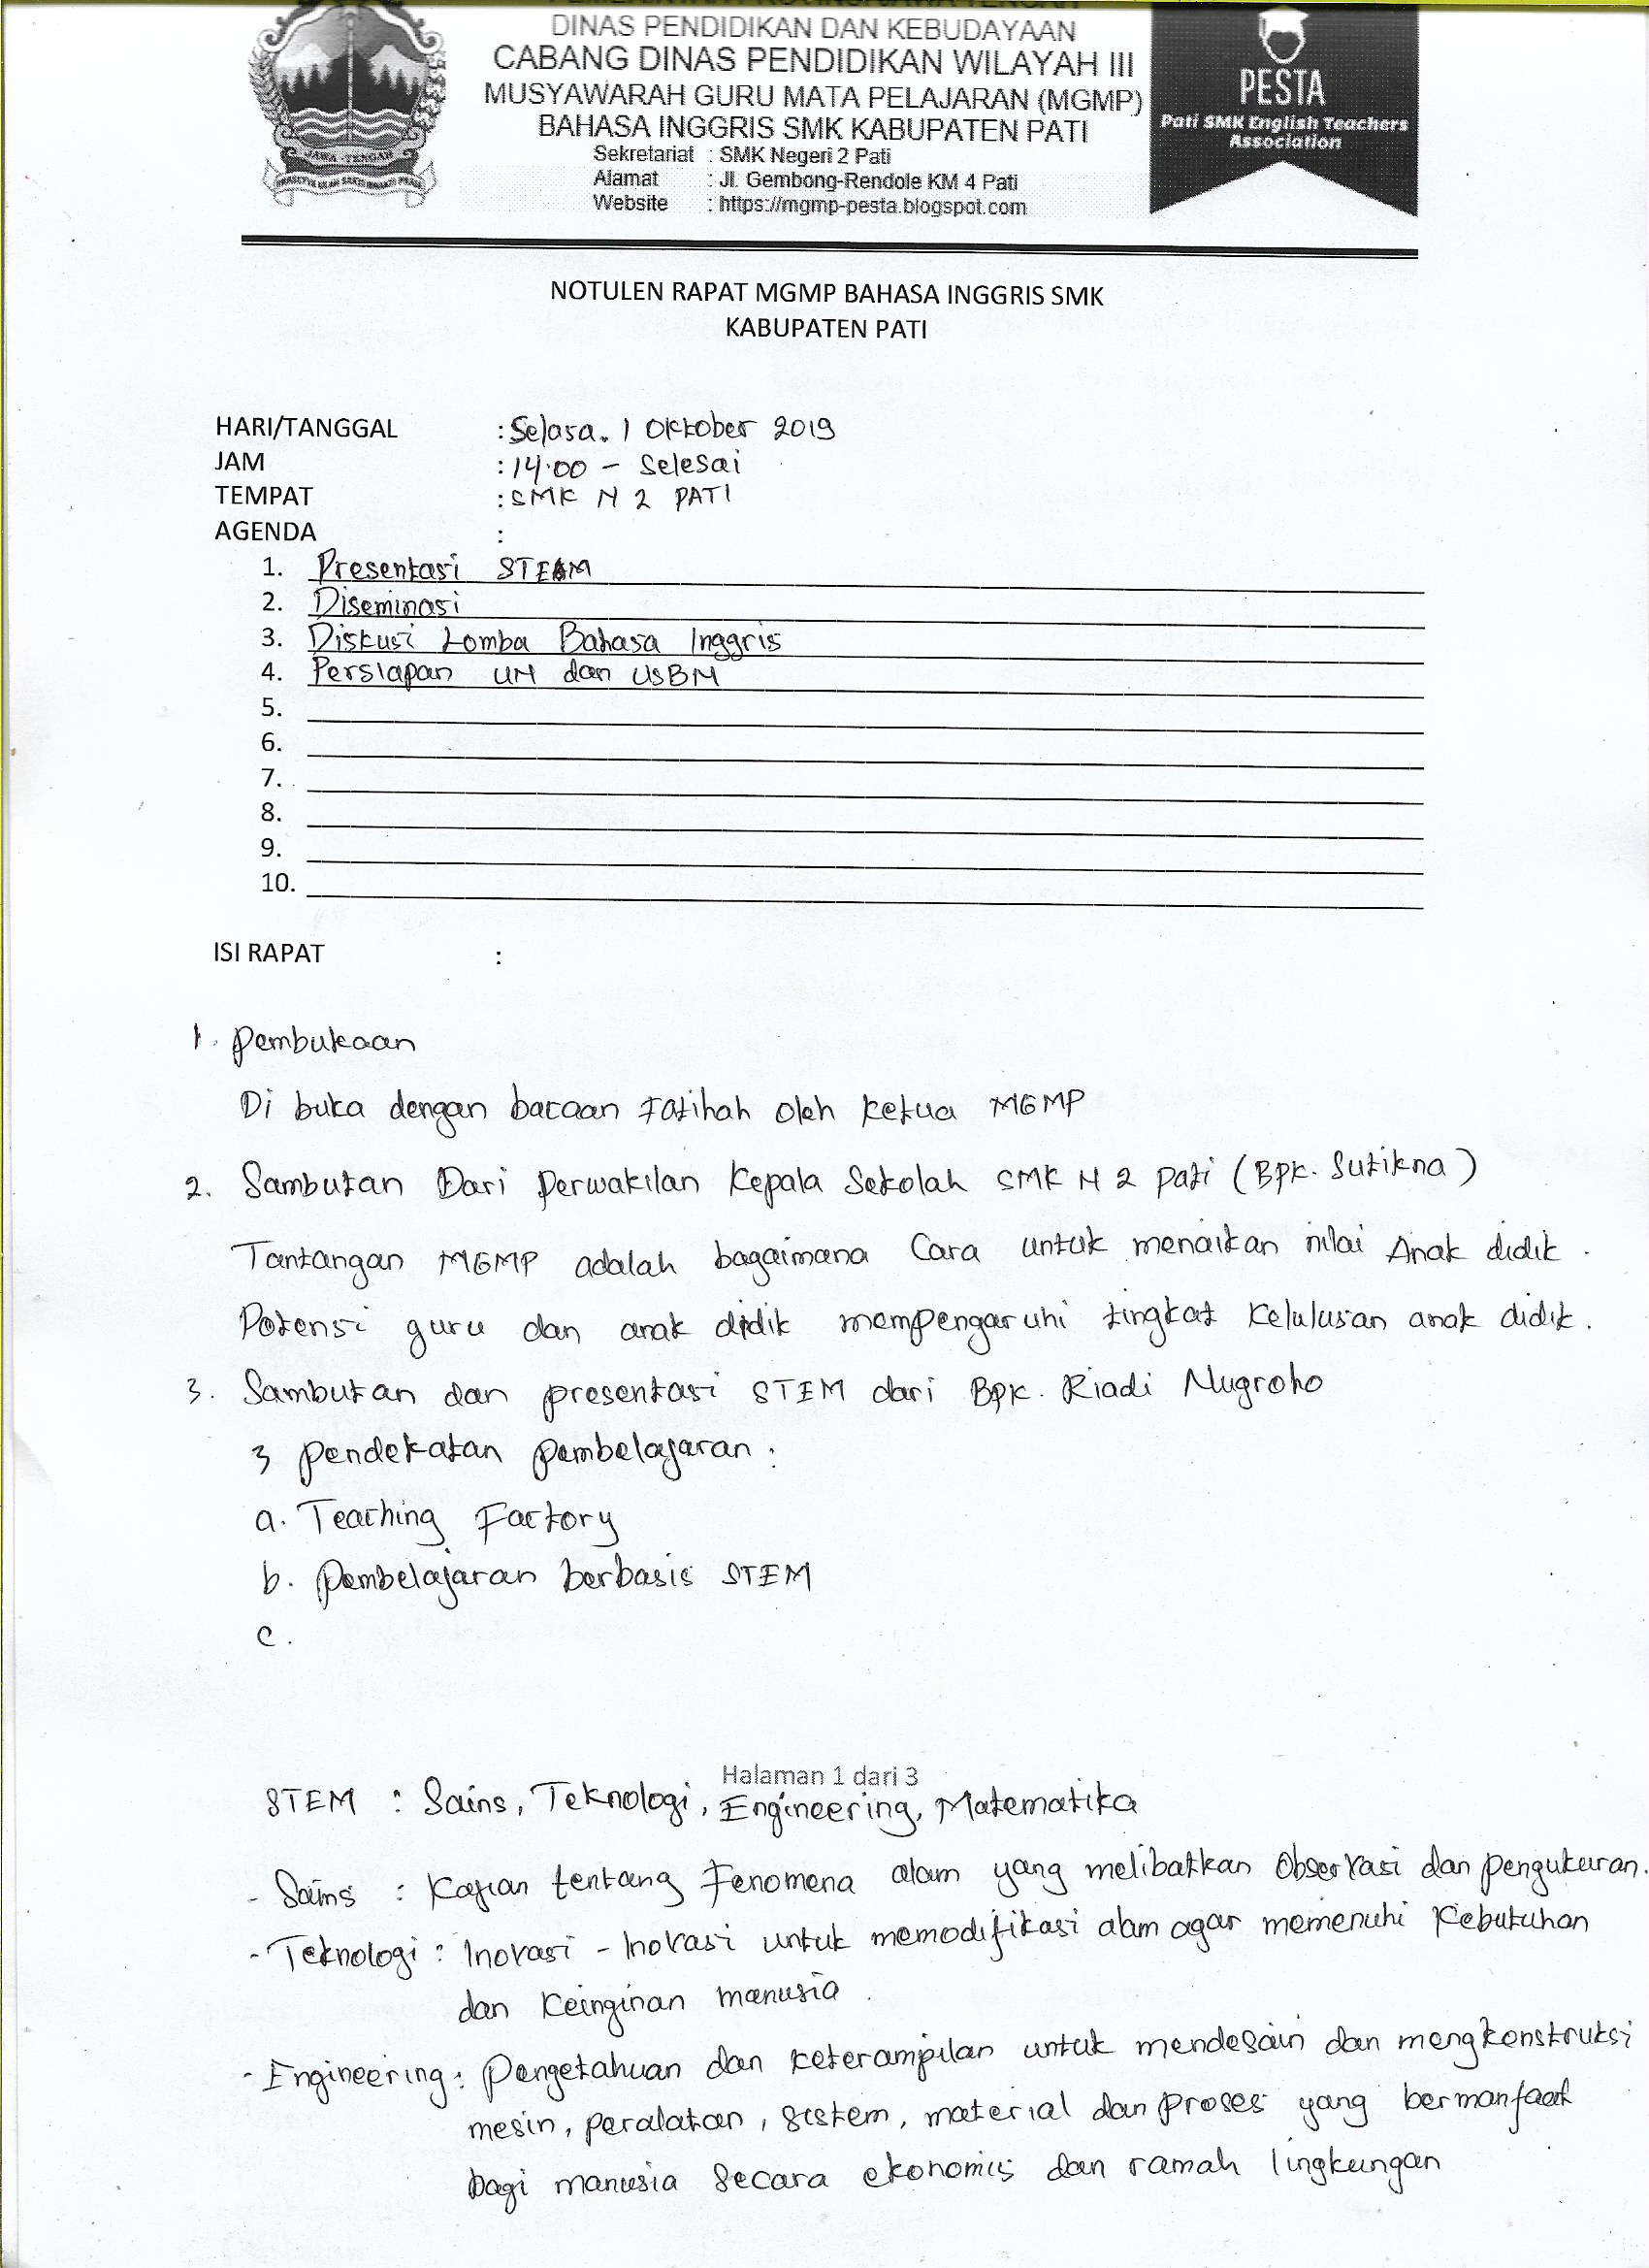 DINAS PENDIDIKAN DAN KEBUDAYAAN
CABANG DINAS PENDIDIKAN WILAYAH III
MUSYAWARAH GURU MATA PELAJARAN (MGMP)
BAHASA INGGRIS SMK KABUPATEN PATI
Sekretariat : SMK Negeri 2 Pati
Alamat : Jl. Gembong-Rendole KM 4 Pati
Website : https://mgmp-pesta.blogspot.com
JAWA-TENGAH
PESTA
Pati SMK English Teachers
Association
NOTULEN RAPAT MGMP BAHASA INGGRIS SMK
KABUPATEN PATI
HARI/TANGGAL : Selasa. 1 Oktober 2019
JAM : 14.00 - Selesai
TEMPAT : SMK N 2 PATI
AGENDA :
1. Presentasi STEAM
2. Diseminasi
3. Diskusi Lomba Bahasa Inggris
4. Persiapan UN dan USBN
5.
6.
7.
8.
9.
10.
ISI RAPAT :
1. Pembukaan
Di buka dengan bacaan Fatihah oleh Ketua MGMP
2. Sambutan Dari Perwakilan Kepala Sekolah SMK N 2 Pati (Bpk. Sutikna)
Tantangan MGMP adalah bagaimana Cara untuk menaikan nilai Anak didik.
Potensi guru dan anak didik mempengaruhi tingkat Kelulusan anak didik.
3. Sambutan dan presentasi STEM dari Bpk. Riadi Nugroho
3 pendekatan pembelajaran :
a. Teaching Factory
b. pembelajaran berbasis STEM
c.
Halaman 1 dari 3
STEM : Sains, Teknologi, Engineering, Matematika
- Sains : Kajian tentang Fenomena alam yang melibatkan Observasi dan pengukuran.
- Teknologi : Inovasi - Inovasi untuk memodifikasi alam agar memenuhi Kebutuhan
dan Keinginan manusia.
- Engineering : Pengetahuan dan keterampilan untuk mendesain dan mengkonstruksi
mesin, peralatan, sistem, material dan proses yang bermanfaat
bagi manusia secara ekonomis dan ramah lingkungan